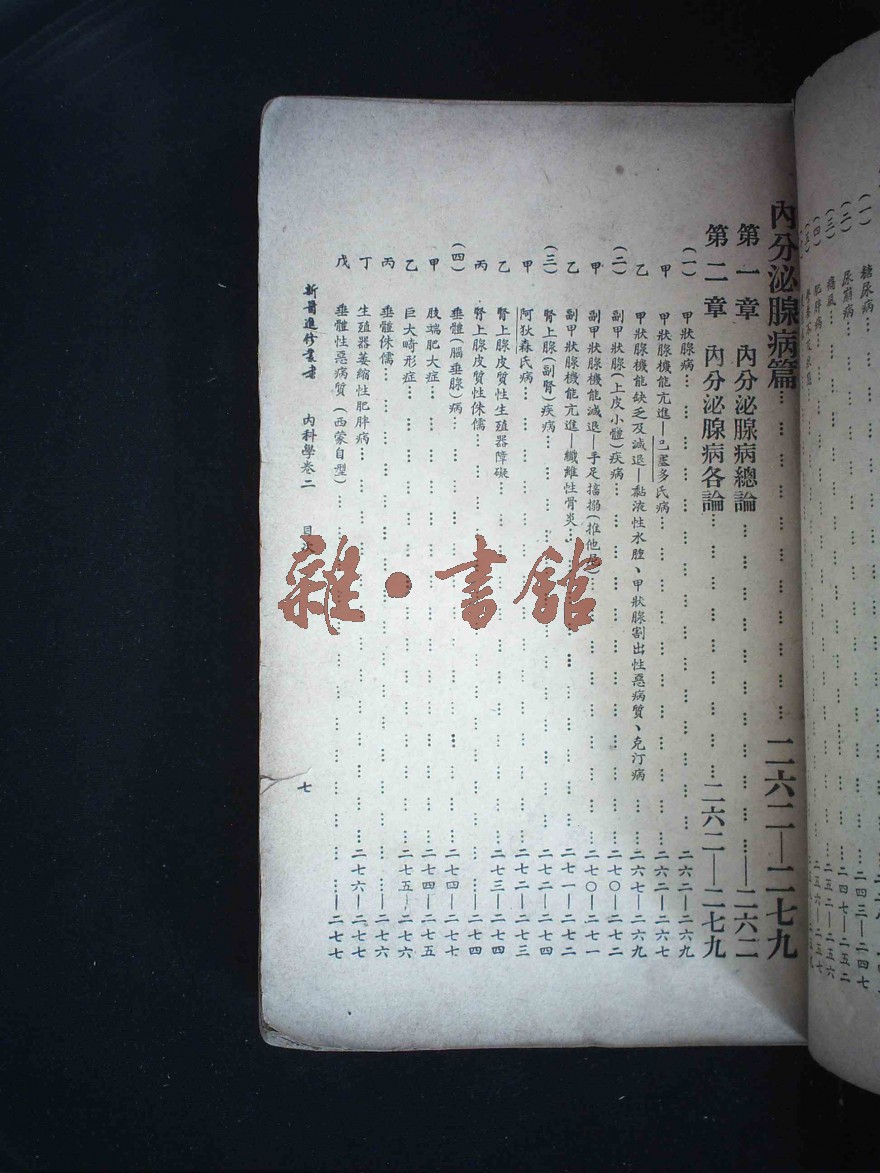 (一) 糖尿病… 二四三—二四七
(二) 尿崩病… 二四七—二五二
(三) 痛風… 二五二—二五六
(四) 肥胖病… 二五六—二五七
內分泌腺病篇… 二六二—二七九
第一章 內分泌腺病總論… —二六二
第二章 內分泌腺病各論… 二六二—二七九
(一) 甲狀腺病… 二六二—二六九
甲 甲狀腺機能亢進—巴塞多氏病… 二六二—二六七
乙 甲狀腺機能缺乏及減退—黏液性水腫、甲狀腺割出性惡病質、克汀病 二六七—二六九
(二) 副甲狀腺(上皮小體)疾病… 二七〇—二七二
甲 副甲狀腺機能減退—手足搐搦(推他尼)… 二七〇—二七一
乙 副甲狀腺機能亢進—纖維性骨炎… 二七一—二七二
(三) 腎上腺(副腎)疾病… 二七二—二七四
甲 阿狄森氏病… 二七二—二七三
乙 腎上腺皮質性生殖器障礙… 二七三—二七四
丙 腎上腺皮質性侏儒… —二七四
(四) 垂體(腦垂腺)病… 二七四—二七七
甲 肢端肥大症… 二七四—二七五
乙 巨大畸形症… 二七五—二七六
丙 垂體侏儒… —二七六
丁 生殖器萎縮性肥胖病… 二七六—二七七
戊 垂體性惡病質(西蒙自型)… —二七七
新醫進修叢書 內科學卷二 目次 七
雜·書館